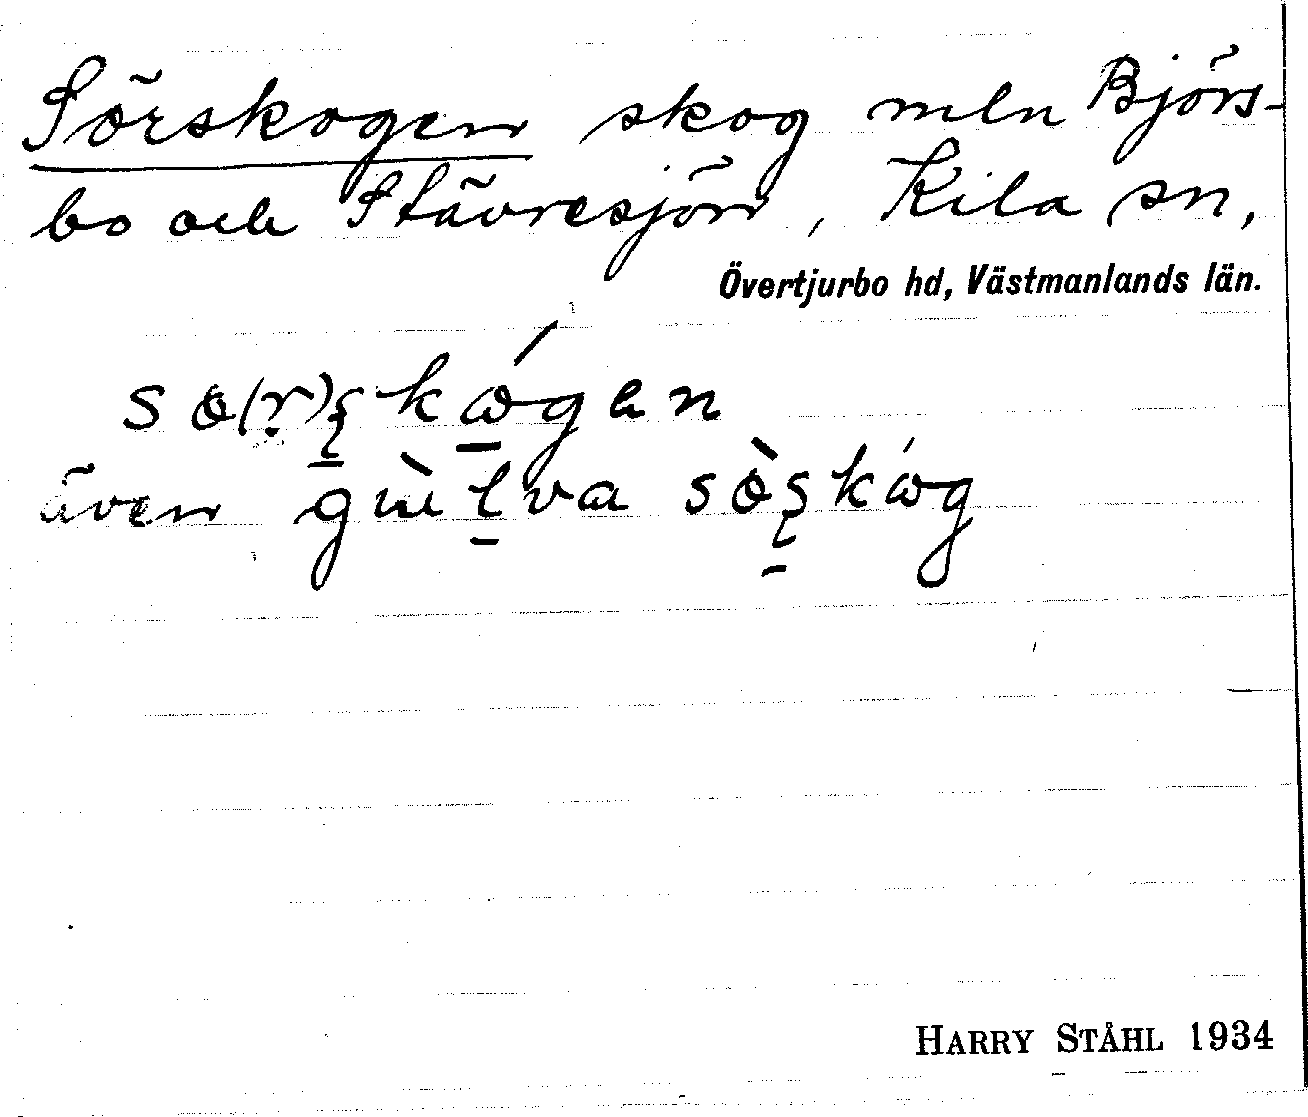 Sörskogen skog mln Björs-
bo och Stävresjön, Kila sn,
Övertjurbo hd, Västmanlands län.
även
HARRY STÅHL 1934